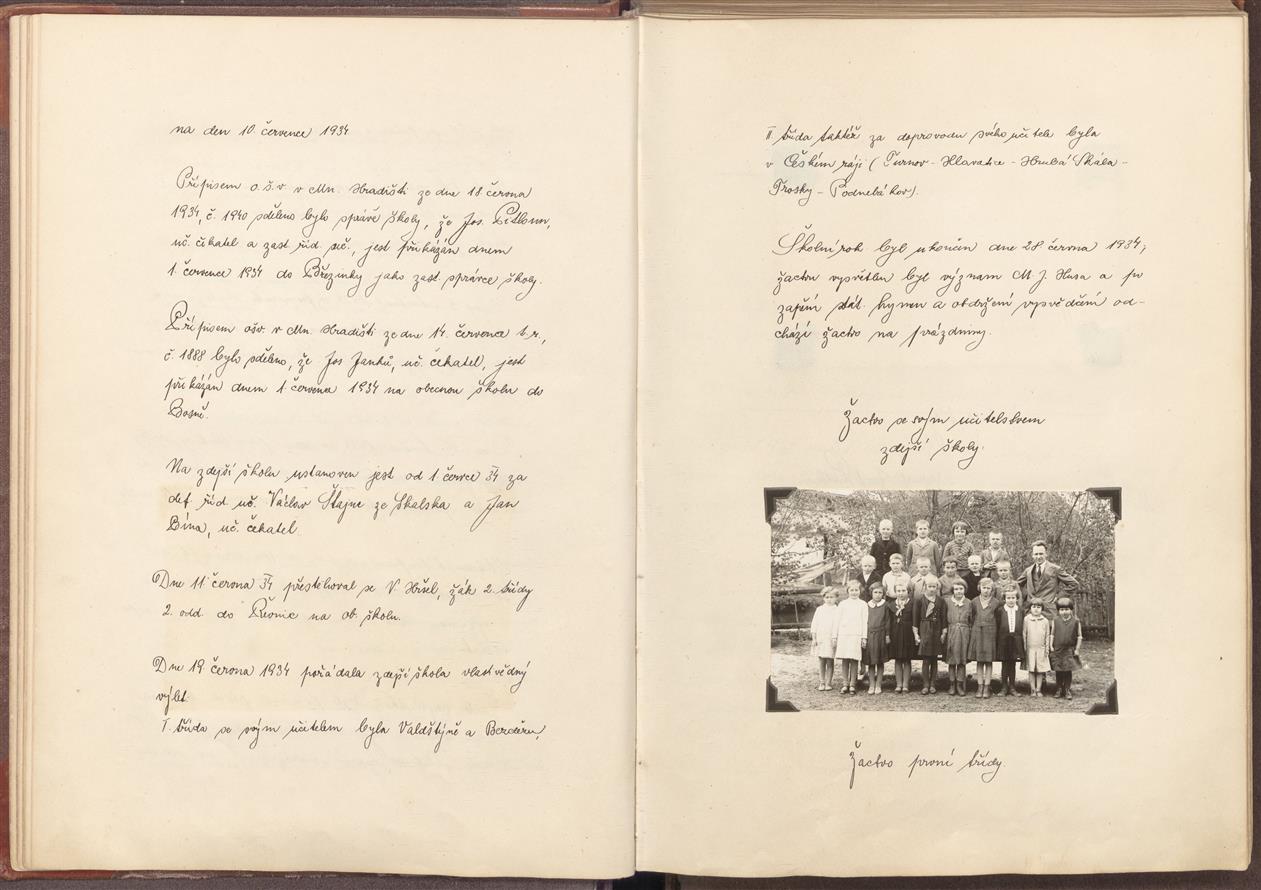 na den 10. července 1934.
Přípisem o.š.v. v Mn. Hradišti ze dne 18 června
1934, č. 1940 sděleno bylo správě školy, že Jos.
uč. čekatel a zast. říd. uč., jest přikázán dnem
1. července 1934 do Březinky jako zast. správce školy.
Přípisem ošv. v Mn. Hradišti ze dne 14. července t.r.,
č. 1888 bylo sděleno, že Jos. Janků, uč. čekatel, jest
přikázán dnem 1. července 1934 na obecnou školu do
Bosně.
Na zdejší školu ustanoven jest od 1 červce 34 za
def. říd. uč. Václav Štajnc ze Skalska a Jan
Bína, uč. čekatel.
Dne 11. června 34 přestěhoval se V. žák 2. třídy
2. odd. do Řevnic na ob. školu.
Dne 19. června 1934 pořádala zdejší škola vlastivědný
výlet.
I. třída se svým učitelem byla Valdštýně a
II. třída taktéž za doprovodu svého učitele byla
v Českém ráji (Turnov - Hlavatice - Hrubá Skála -
Trosky - Podnebákov).
Školní rok byl ukončen dne 28 června 1934;
žactvu vysvětlen byl význam M. J. Husa a po
zapění stát. hymen a obdržení vysvědčení od-
chází žactvo na prázdniny.
Žactvo se svým učitelstvem
zdejší školy.
Žactvo první třídy.